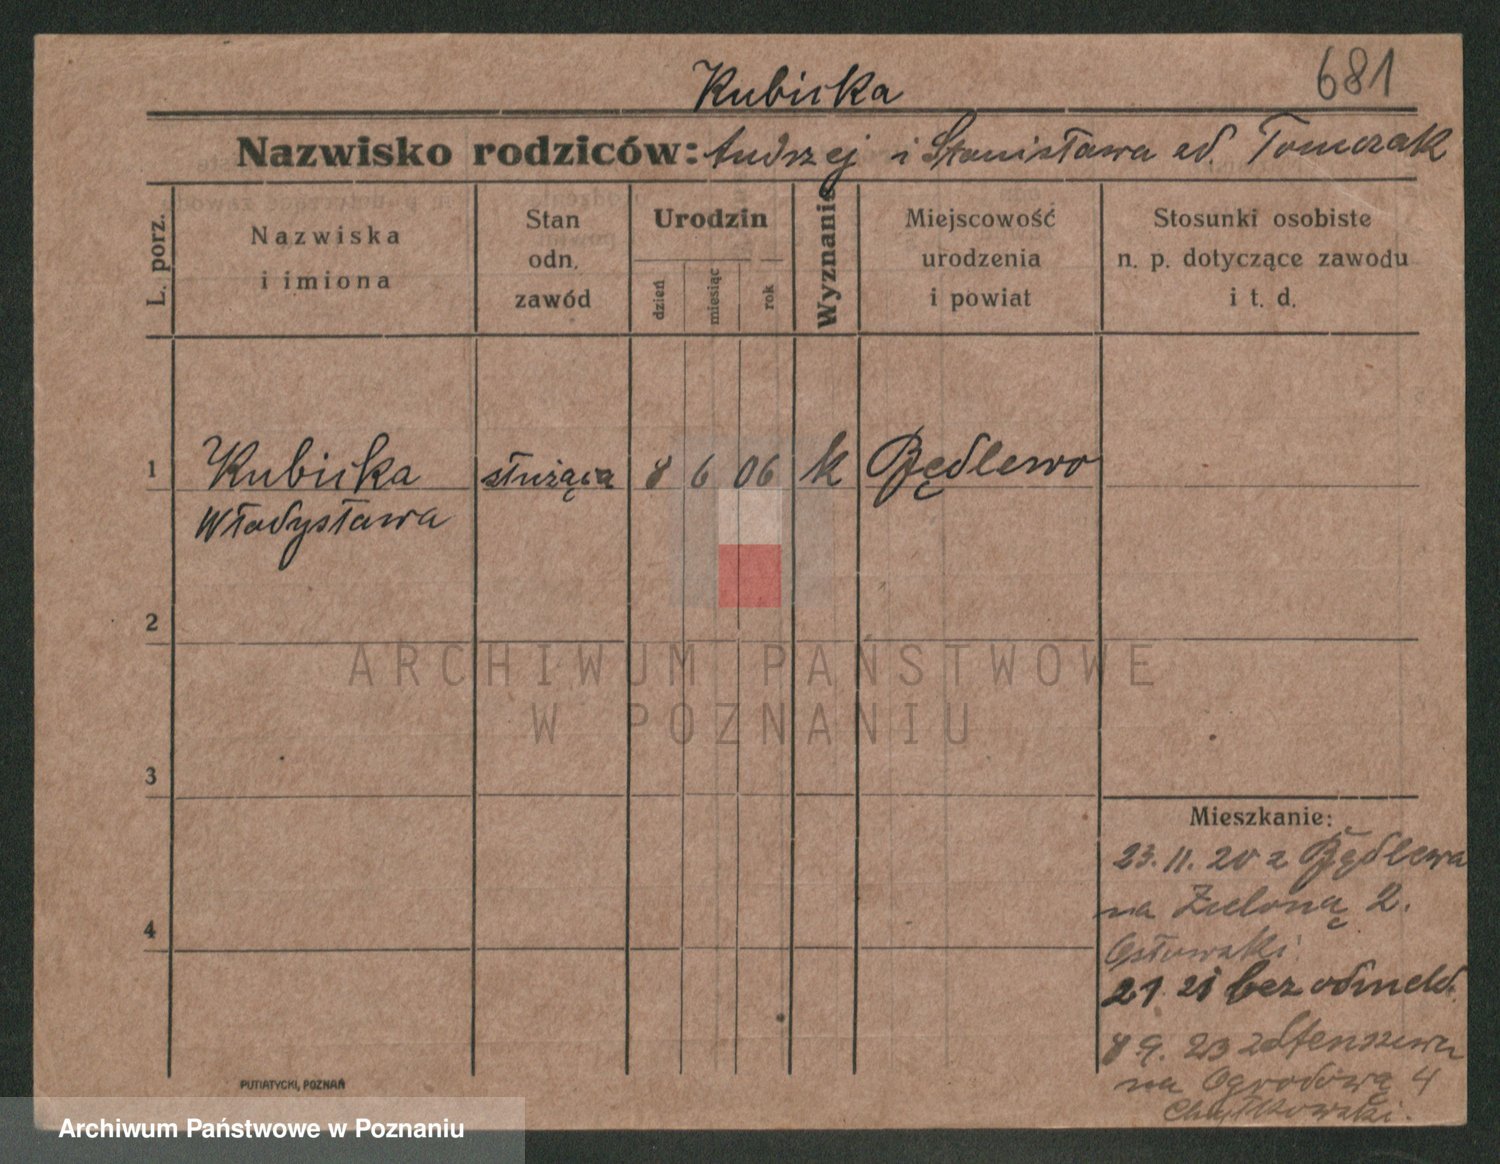 681
Kubicka
Nazwisko rodziców: Andrzej i Stanisława od. Tomczak
L. porz.
Nazwiska
i imiona
Stan
odn.
zawód
Urodzin
dzień
miesiąc
rok
Wyznanie
Miejscowość
urodzenia
i powiat
Stosunki osobiste
n. p. dotyczące zawodu
i t. d.
1 Kubicka służąca 8 6 06 k Będlewo
Władysława
2
ARCHIWUM PAŃSTWOWE
W POZNANIU
3
Mieszkanie:
23.11.20 z Będlewa
na Zieloną 2.
4
21 bez odmeld.
8 9. 23 z Stenszewa
na Ogrodową 4
PUTIATYCKI, POZNAŃ
Archiwum Państwowe w Poznaniu